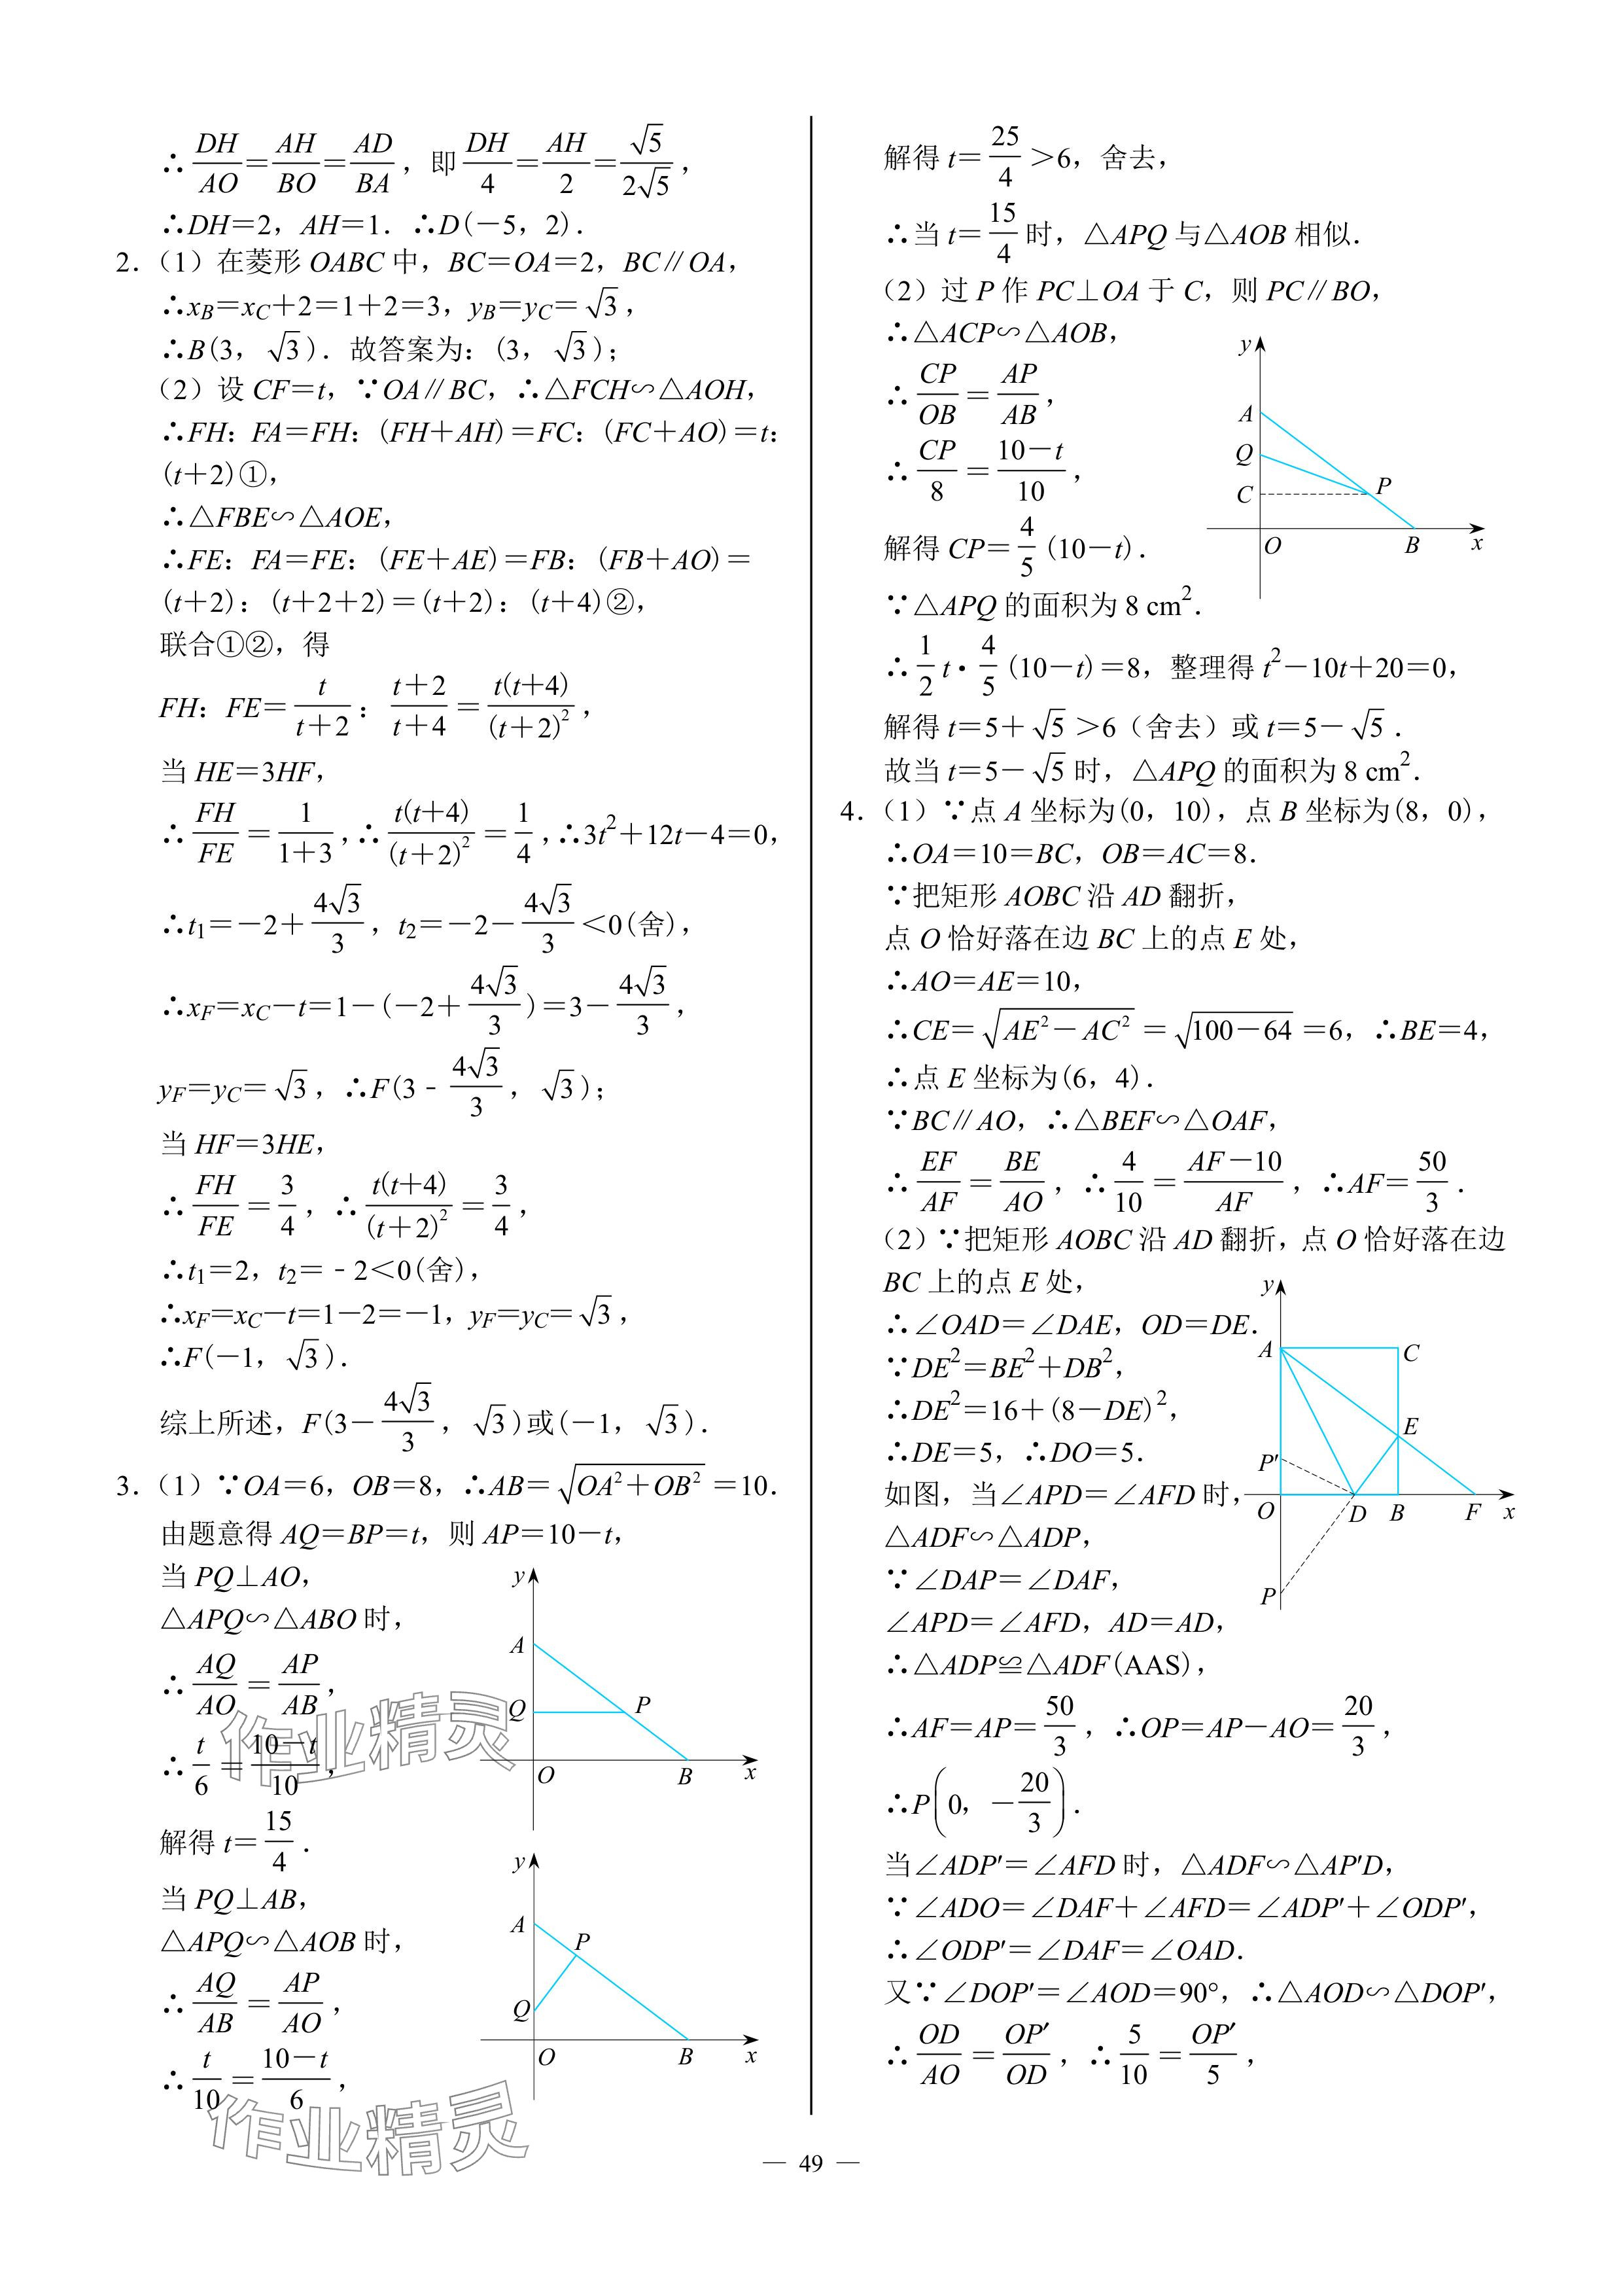 ∴DH/AO=AH/BO=AD/BA，即DH/4=AH/2=√5/2√5，
∴DH=2，AH=1．∴D(－5，2)．
2．（1）在菱形 OABC 中，BC=OA=2，BC∥OA，
∴x_B=x_C+2=1+2=3，y_B=y_C=√3，
∴B(3，√3)．故答案为：(3，√3)；
（2）设 CF=t，∵OA∥BC，∴△FCH∽△AOH，
∴FH：FA=FH：(FH+AH)=FC：(FC+AO)=t：
(t+2)①，
∴△FBE∽△AOE，
∴FE：FA=FE：(FE+AE)=FB：(FB+AO)=
(t+2)：(t+2+2)=(t+2)：(t+4)②，
联合①②，得
FH：FE=t/(t+2)：(t+2)/(t+4)=t(t+4)/(t+2)²，
当 HE=3HF，
∴FH/FE=1/(1+3)，∴t(t+4)/(t+2)²=1/4，∴3t²+12t－4=0，
∴t₁=－2+4√3/3，t₂=－2－4√3/3<0(舍)，
∴x_F=x_C－t=1－(－2+4√3/3)=3－4√3/3，
y_F=y_C=√3，∴F(3-4√3/3，√3)；
当 HF=3HE，
∴FH/FE=3/4，∴t(t+4)/(t+2)²=3/4，
∴t₁=2，t₂=-2<0(舍)，
∴x_F=x_C－t=1－2=－1，y_F=y_C=√3，
∴F(－1，√3)．
综上所述，F(3－4√3/3，√3)或(－1，√3)．
3．（1）∵OA=6，OB=8，∴AB=√(OA²+OB²)=10．
由题意得 AQ=BP=t，则 AP=10－t，
当 PQ⊥AO，
△APQ∽△ABO 时，
∴AQ/AO=AP/AB，
∴t/6=(10－t)/10，
解得 t=15/4．
y
A
Q
P
O
B
x
当 PQ⊥AB，
△APQ∽△AOB 时，
∴AQ/AB=AP/AO，
∴t/10=(10－t)/6，
y
A
P
Q
O
B
x
作业精灵
作业精灵
解得 t=25/4>6，舍去，
∴当 t=15/4时，△APQ 与△AOB 相似．
（2）过 P 作 PC⊥OA 于 C，则 PC∥BO，
∴△ACP∽△AOB，
∴CP/OB=AP/AB，
∴CP/8=(10－t)/10，
解得 CP=4/5(10－t)．
y
A
Q
C
P
O
B
x
∵△APQ 的面积为 8 cm²．
∴1/2t·4/5(10－t)=8，整理得 t²－10t+20=0，
解得 t=5+√5>6（舍去）或 t=5－√5．
故当 t=5－√5时，△APQ 的面积为 8 cm²．
4．（1）∵点 A 坐标为(0，10)，点 B 坐标为(8，0)，
∴OA=10=BC，OB=AC=8．
∵把矩形 AOBC 沿 AD 翻折，
点 O 恰好落在边 BC 上的点 E 处，
∴AO=AE=10，
∴CE=√(AE²－AC²)=√(100－64)=6，∴BE=4，
∴点 E 坐标为(6，4)．
∵BC∥AO，∴△BEF∽△OAF，
∴EF/AF=BE/AO，∴4/10=(AF－10)/AF，∴AF=50/3．
（2）∵把矩形 AOBC 沿 AD 翻折，点 O 恰好落在边
BC 上的点 E 处，
∴∠OAD=∠DAE，OD=DE．
∵DE²=BE²+DB²，
∴DE²=16+(8－DE)²，
∴DE=5，∴DO=5．
如图，当∠APD=∠AFD 时，
△ADF∽△ADP，
∵∠DAP=∠DAF，
∠APD=∠AFD，AD=AD，
∴△ADP≌△ADF(AAS)，
y
A
C
E
P′
O
D
B
F
x
P
∴AF=AP=50/3，∴OP=AP－AO=20/3，
∴P(0，－20/3)．
当∠ADP′=∠AFD 时，△ADF∽△AP′D，
∵∠ADO=∠DAF+∠AFD=∠ADP′+∠ODP′，
∴∠ODP′=∠DAF=∠OAD．
又∵∠DOP′=∠AOD=90°，∴△AOD∽△DOP′，
∴OD/AO=OP′/OD，∴5/10=OP′/5，
— 49 —